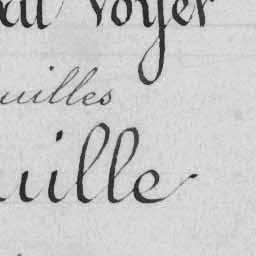 Voyer
uilles
uille